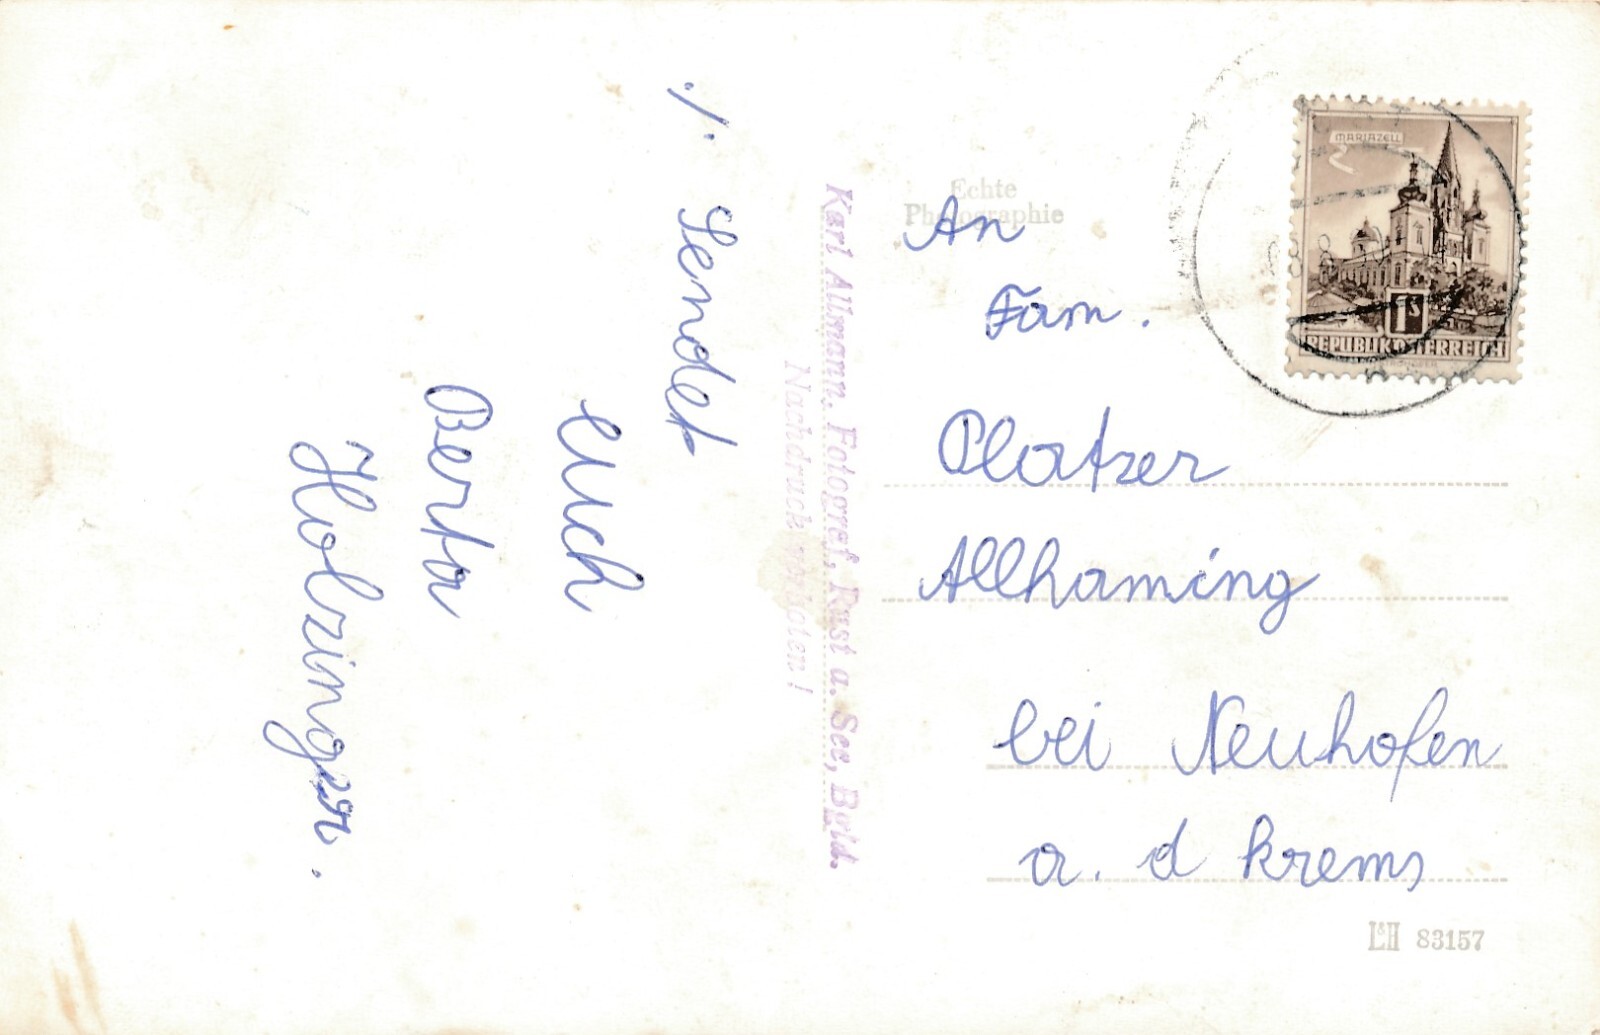 ./.
Sendet
euch
Berta
Holzinger.
Karl Allmann, Fotograf, Rust a. See, Bgld.
Nachdruck verboten!
Echte
Photographie
An
Fam.
Platzer
Allhaming
bei Neuhofen
a. d Krems
MARIAZELL
1S
REPUBLIK ÖSTERREICH
L&H 83157